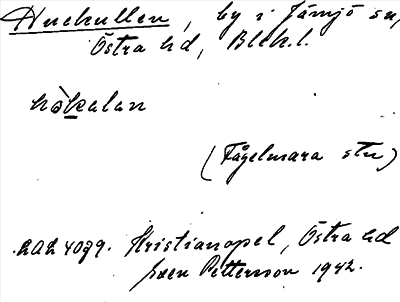 Huckullen, by i Jämjö sn,
Östra hd, Blek.l.
hò̱kalan
(Fågelmara stn)
Kristianopel, Östra hd
Pettersson 1942.